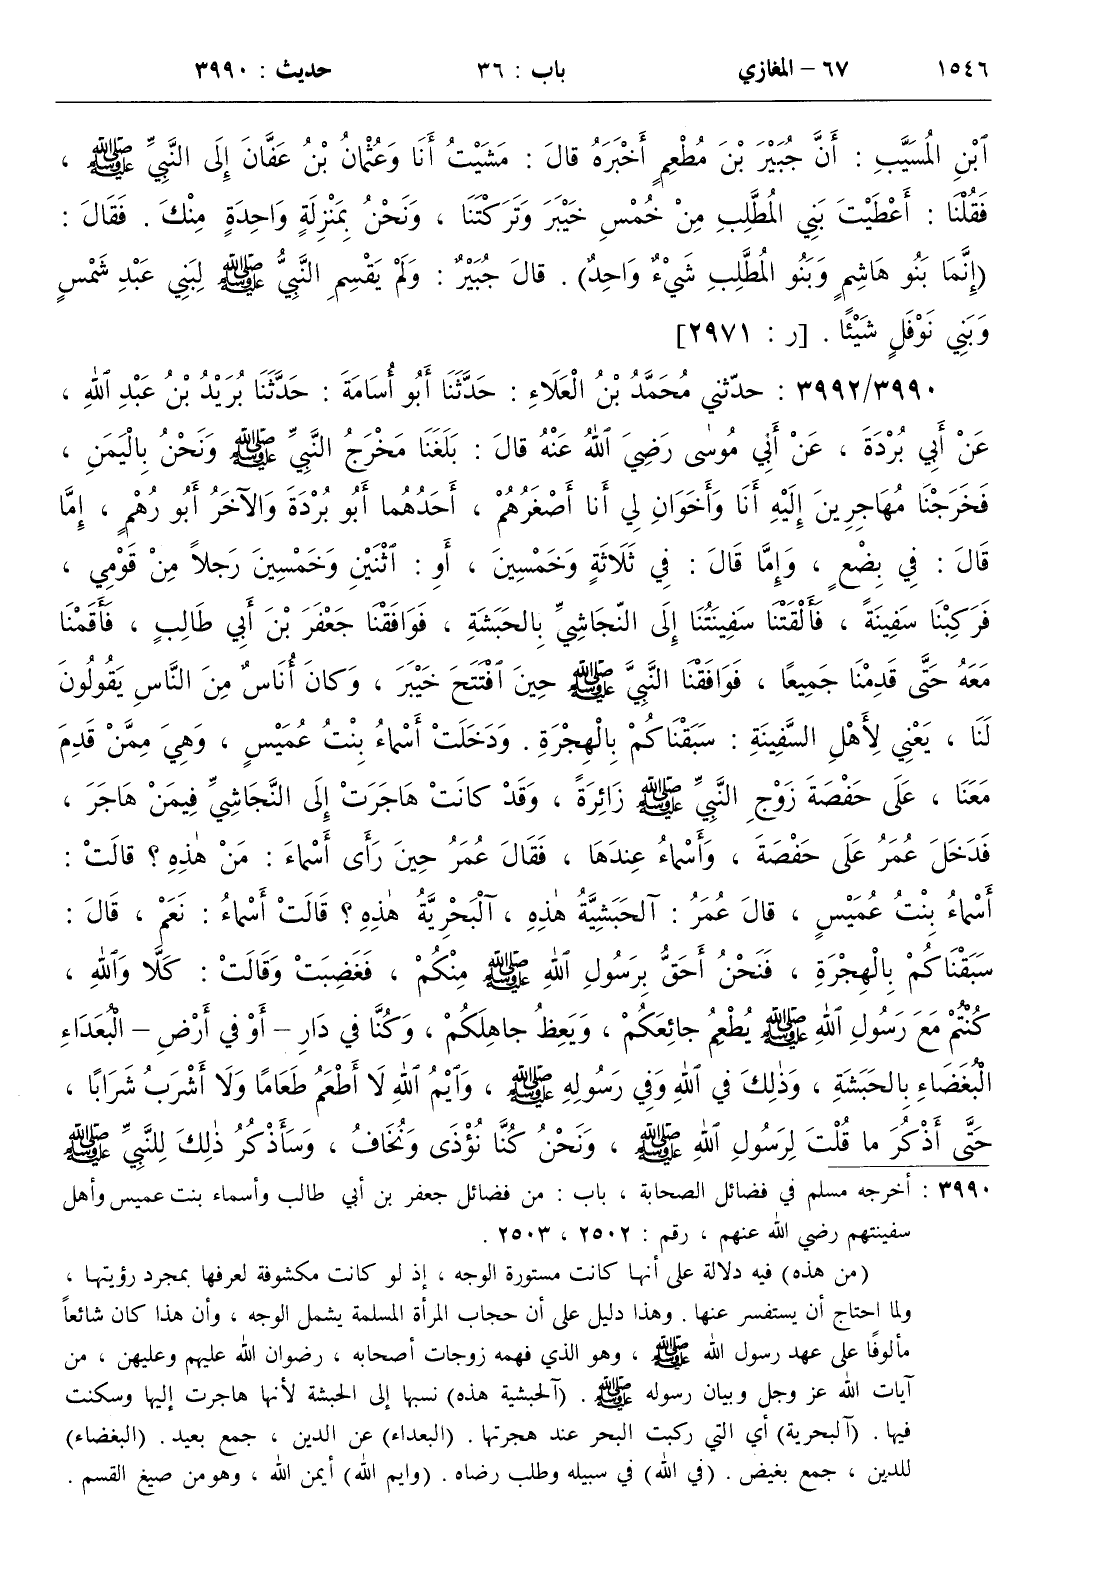 ١٥٤٦ ٦٧ – المغازي باب : ٣٦ حديث : ٣٩٩٠
ٱبْنِ الْمُسَيَّبِ : أَنَّ جُبَيْرَ بْنَ مُطْعِمٍ أَخْبَرَهُ قالَ : مَشَيْتُ أَنَا وَعُثْمانُ بْنُ عَفَّانَ إِلَى النَّبِيِّ ﷺ ،
فَقُلْنَا : أَعْطَيْتَ بَنِي الْمُطَّلِبِ مِنْ خُمْسِ خَيْبَرَ وَتَرَكْتَنَا ، وَنَحْنُ بِمَنْزِلَةٍ وَاحِدَةٍ مِنْكَ . فَقَالَ :
(إِنَّمَا بَنُو هَاشِمٍ وَبَنُو الْمُطَّلِبِ شَيْءٌ وَاحِدٌ) . قالَ جُبَيْرٌ : وَلَمْ يَقْسِمِ النَّبِيُّ ﷺ لِبَنِي عَبْدِ شَمْسٍ
وَبَنِي نَوْفَلٍ شَيْئًا . [ر : ٢٩٧١]
٣٩٩٢/٣٩٩٠ : حدّثني مُحَمَّدُ بْنُ الْعَلَاءِ : حَدَّثَنَا أَبُو أُسَامَةَ : حَدَّثَنَا بُرَيْدُ بْنُ عَبْدِ ٱللهِ ،
عَنْ أَبِي بُرْدَةَ ، عَنْ أَبِي مُوسٰى رَضِيَ ٱللهُ عَنْهُ قالَ : بَلَغَنَا مَخْرَجُ النَّبِيِّ ﷺ وَنَحْنُ بِالْيَمَنِ ،
فَخَرَجْنَا مُهَاجِرِينَ إِلَيْهِ أَنَا وَأَخَوَانِ لِي أَنا أَصْغَرُهُمْ ، أَحَدُهُما أَبُو بُرْدَةَ وَالآخَرُ أَبُو رُهْمٍ ، إِمَّا
قَالَ : فِي بِضْعٍ ، وَإِمَّا قَالَ : فِي ثَلَاثَةٍ وَخَمْسِينَ ، أَوِ : ٱثْنَيْنِ وَخَمْسِينَ رَجلاً مِنْ قَوْمِي ،
فَرَكِبْنَا سَفِينَةً ، فَأَلْقَتْنَا سَفِينَتُنَا إِلَى النّجَاشِيِّ بِالحَبَشَةِ ، فَوَافَقْنَا جَعْفَرَ بْنَ أَبِي طَالِبٍ ، فَأَقَمْنَا
مَعَهُ حَتَّى قَدِمْنَا جَمِيعًا ، فَوَافَقْنَا النَّبِيَّ ﷺ حِينَ ٱفْتَتَحَ خَيْبَرَ ، وَكانَ أُنَاسٌ مِنَ النَّاسِ يَقُولُونَ
لَنَا ، يَعْنِي لِأَهْلِ السَّفِينَةِ : سَبَقْنَاكُمْ بِالْهِجْرَةِ . وَدَخَلَتْ أَسْماءُ بِنْتُ عُمَيْسٍ ، وَهِيَ مِمَّنْ قَدِمَ
مَعَنَا ، عَلَى حَفْصَةَ زَوْجِ النَّبِيِّ ﷺ زَائِرَةً ، وَقَدْ كانَتْ هَاجَرَتْ إِلَى النَّجَاشِيِّ فِيمَنْ هَاجَرَ ،
فَدَخَلَ عُمَرُ عَلَى حَفْصَةَ ، وَأَسْماءُ عِندَهَا ، فَقَالَ عُمَرُ حِينَ رَأَى أَسْماءَ : مَنْ هٰذِهِ ؟ قالَتْ :
أَسْماءُ بِنْتُ عُمَيْسٍ ، قالَ عُمَرُ : آلحَبَشِيَّةُ هٰذِهِ ، آلْبَحْرِيَّةُ هٰذِهِ ؟ قالَتْ أَسْماءُ : نَعَمْ ، قالَ :
سَبَقْنَاكُمْ بِالْهِجْرَةِ ، فَنَحْنُ أَحَقُّ بِرَسُولِ ٱللهِ ﷺ مِنْكُمْ ، فَغَضِبَتْ وَقالَتْ : كَلَّا وَٱللهِ ،
كُنْتُمْ مَعَ رَسُولِ ٱللهِ ﷺ يُطْعِمُ جائِعَكُمْ ، وَيَعِظُ جاهِلَكُمْ ، وَكُنَّا فِي دَارِ – أَوْ فِي أَرْضِ – الْبُعَدَاءِ
الْبُغَضَاءِ بِالحَبَشَةِ ، وَذٰلِكَ فِي ٱللهِ وَفِي رَسُولِهِ ﷺ ، وَٱيْمُ ٱللهِ لَا أَطْعَمُ طَعَامًا وَلَا أَشْرَبُ شَرَابًا ،
حَتَّى أَذْكُرَ ما قُلْتَ لِرَسُولِ ٱللهِ ﷺ ، وَنَحْنُ كُنَّا نُؤْذَى وَنُخَافُ ، وَسَأَذْكُرُ ذٰلِكَ لِلنَّبِيِّ ﷺ
٣٩٩٠ : أخرجه مسلم في فضائل الصحابة ، باب : من فضائل جعفر بن أبي طالب وأسماء بنت عميس وأهل
سفينتهم رضي الله عنهم ، رقم : ٢٥٠٢ ، ٢٥٠٣ .
(من هذه) فيه دلالة على أنها كانت مستورة الوجه ، إذ لو كانت مكشوفة لعرفها بمجرد رؤيتها ،
ولما احتاج أن يستفسر عنها . وهذا دليل على أن حجاب المرأة المسلمة يشمل الوجه ، وأن هذا كان شائعاً
مألوفًا على عهد رسول الله ﷺ ، وهو الذي فهمه زوجات أصحابه ، رضوان الله عليهم وعليهن ، من
آيات الله عز وجل وبيان رسوله ﷺ . (آلحبشية هذه) نسبها إلى الحبشة لأنها هاجرت إليها وسكنت
فيها . (آلبحرية) أي التي ركبت البحر عند هجرتها . (البعداء) عن الدين ، جمع بعيد . (البغضاء)
للدين ، جمع بغيض . (في الله) في سبيله وطلب رضاه . (وايم الله) أيمن الله ، وهو من صيغ القسم .